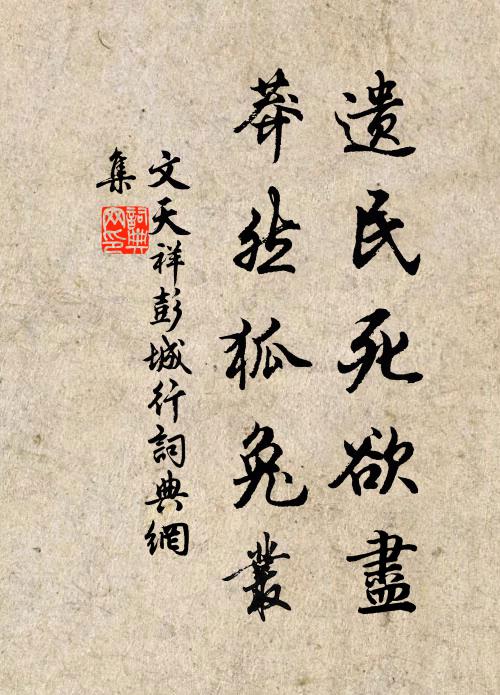 遺民死欲盡
莽然狐兔叢
文天祥彭城行詞典網
集
詞典网印